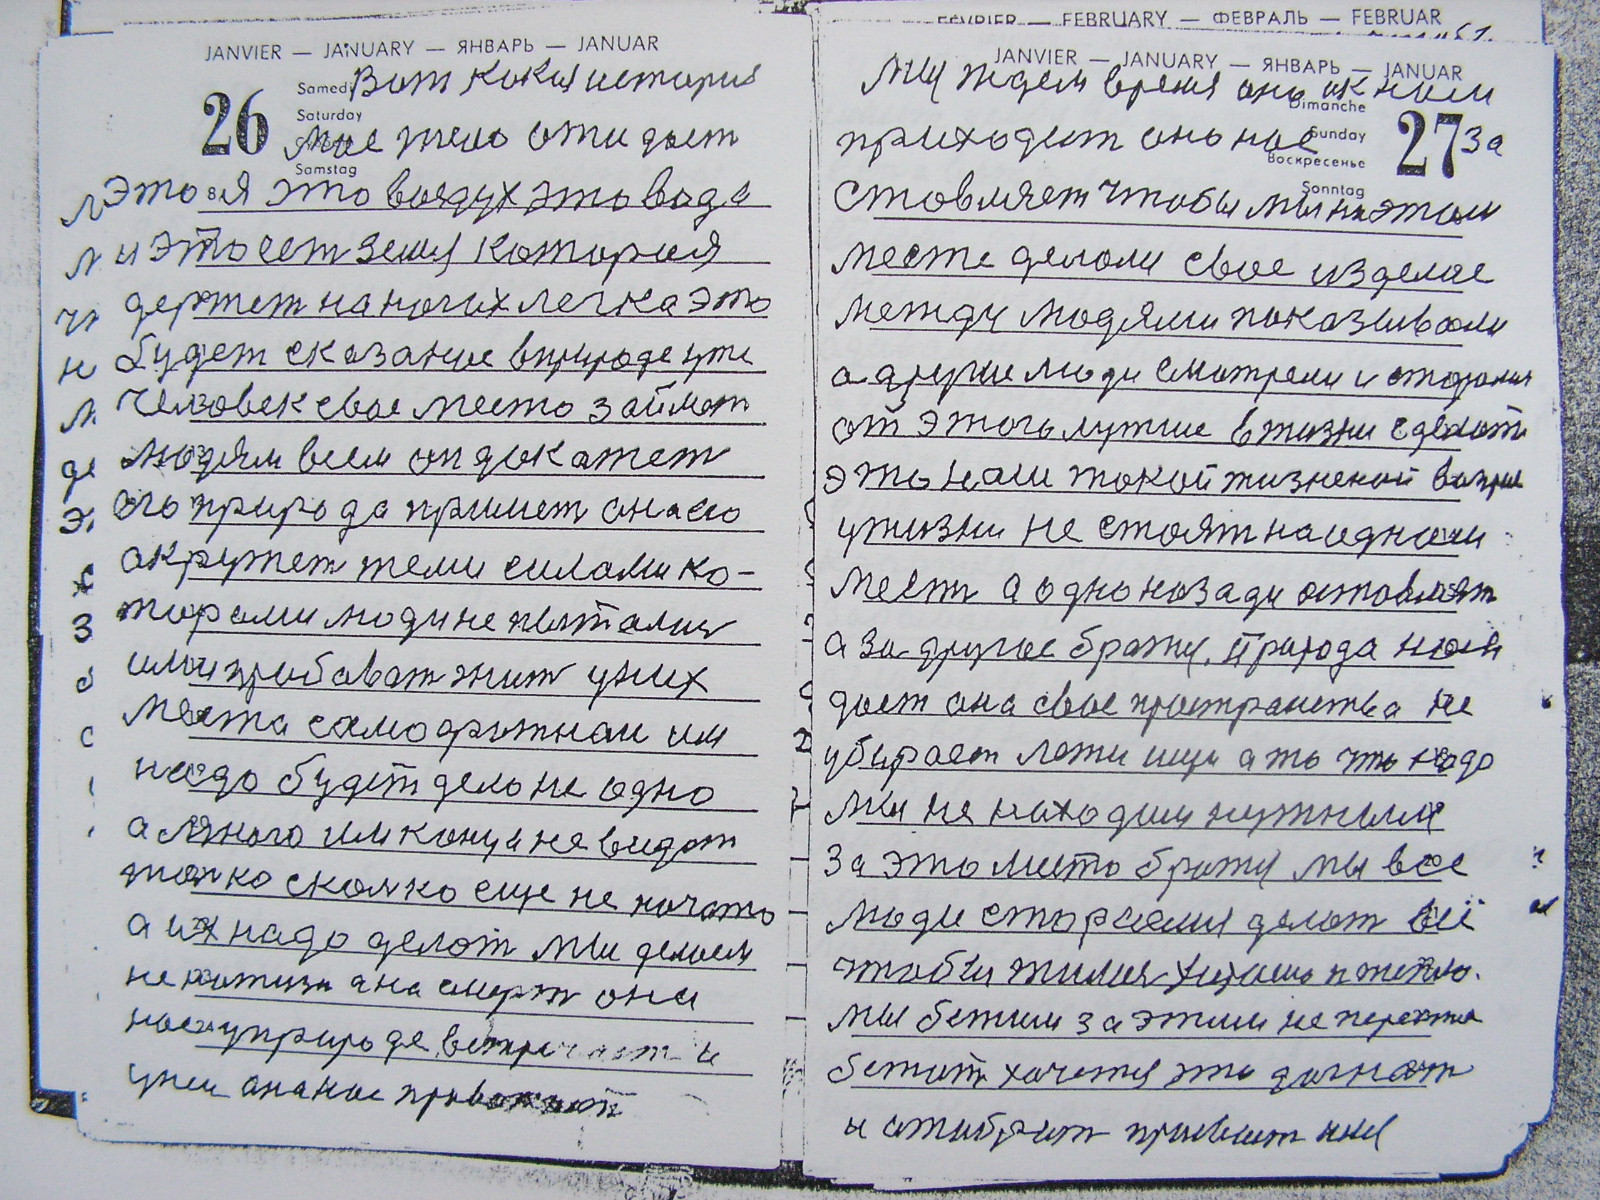 JANVIER — JANUARY — ЯНВАРЬ — JANUAR
26
Samedi
Saturday
Samstag
Вот какая история
мае тело ожи дает
Это я это воздух это вода
и это ест земя которая
держет на ногих легка это
будет сказание в природе уже
человек свое место займет
людям всем он докажет
его природа примет она его
акружет теми силами ко-
торами люди не пытались
или пробават жит у них
места самодржном им
надо будет дело не одно
а много им конца не видат
только сколко еще не начато
а их надо делат мы делаем
не на жизн а на смерт она
нас у природе встречает и
уже она нас провожает
FÉVRIER — FEBRUARY — ФЕВРАЛЬ — FEBRUAR
JANVIER — JANUARY — ЯНВАРЬ — JANUAR
Dimanche
Sunday
Воскресенье
Sonntag
27
Мы ждем время оно к нам
приходет оно нас за
ставляет чтобы мы на этом
месте делали свое изделие
между людями показывали
а другие люди смотрели и старалис
от этого лутше в жизни сделат
это наш такой жизненой вапрос
у жизни не стоят на одном
мест а одно назади оставляят
а за другое бражу. Природа нам
дает она свое пространства не
убирает лежи ищи а то что надо
мы не находим нужным
за это место бражу мы все
люди стараемся делат всё
чтобы жилось хорошо и тепло.
мы бежим за этим не перестаем
бежат хочется это догнат
и атабрат